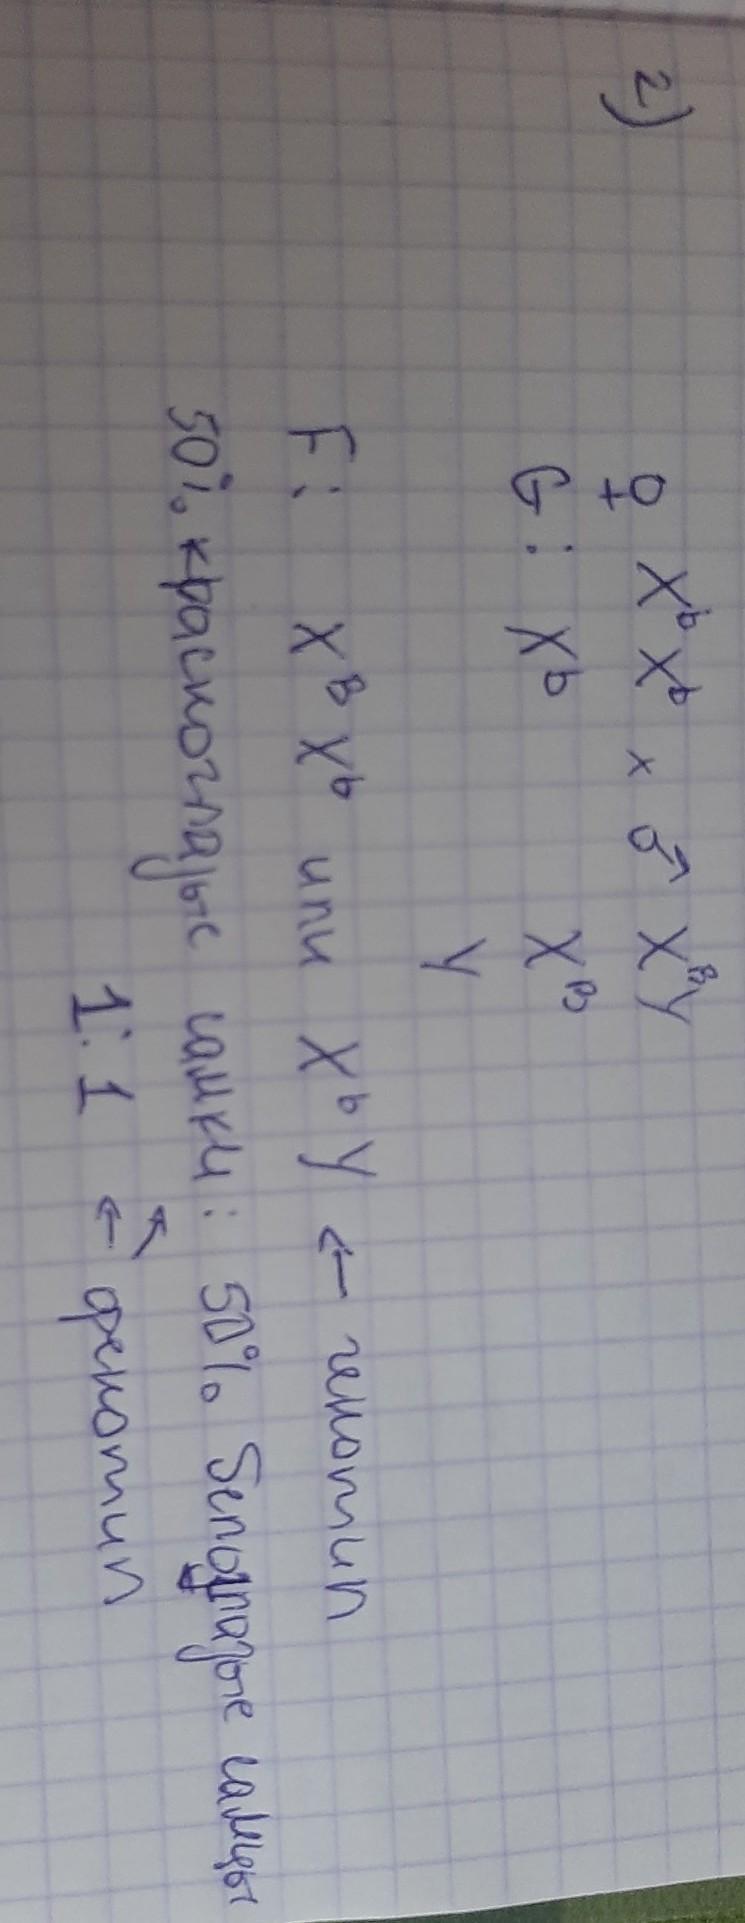 2)
♀ XᵇXᵇ × ♂ XᴮY
G: Xᵇ Xᴮ
Y
F: XᴮXᵇ или XᵇY ← генотип
50% красноглазые самки : 50% белоглазые самцы
1:1 ← фенотип